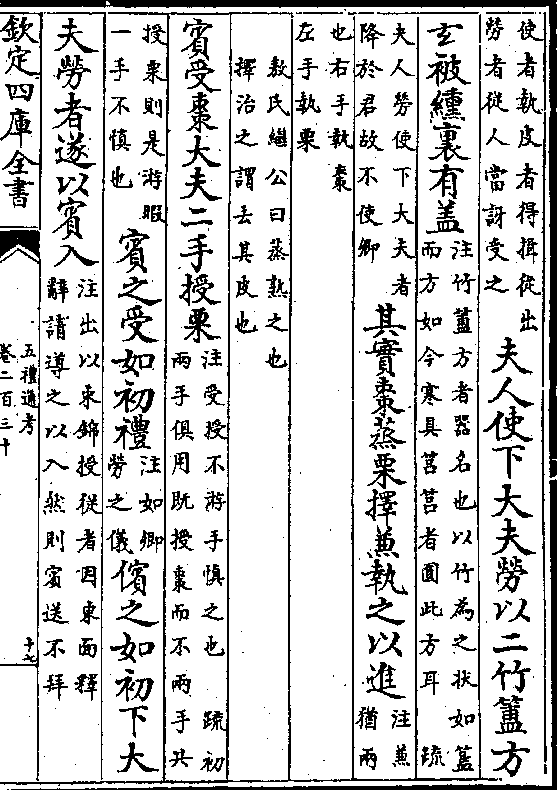 使者執皮者得揖從出
勞者從人當訝受之
夫人使下大夫勞以二竹簠方
玄被纁裏有盖
注竹簠方者器名也以竹為之狀如簠
而方如今寒具筥筥者圓此方耳 疏
夫人勞使下大夫者
降於君故不使卿
其實棗蒸栗擇兼執之以進
注兼
猶兩
也右手執棗
左手執栗
敖氏繼公曰蒸熟之也
擇治之謂去其皮也
賓受棗大夫二手授栗
注受授不游手慎之也 疏初
兩手俱用既授棗而不兩手共
授栗則是游暇
一手不慎也
賓之受如初禮
注如卿
勞之儀
儐之如初下大
夫勞者遂以賓入
注出以束錦授從者因東面釋
辭請導之以入然則賓送不拜
欽定四庫全書
五禮通考
卷二百三十
十七